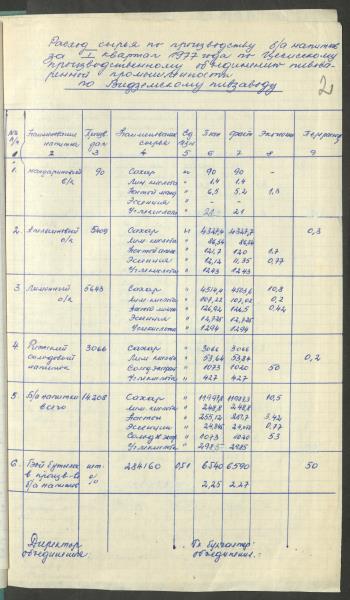 Расход сырья по производству б/а напитков
за I квартал 1977 года по Цесисскому
производственному объединению пивова-
ренной промышленности
по Видземскому пивзаводу
2
№ п/п Наименование напитка Произв. дал Наименование сырья Ед. изм План факт Экономия Перерасход
1 2 3 4 5 6 7 8 9
1. Мандариновый б/к 90 Сахар кг 90 90 -
Лим. кислота " 1,4 1,4
Настой манд " 6,5 5,2 1,3
Эссенция " - -
Углекислота " 21 21
2. Апельсиновый б/к 5409 Сахар кг 4327,4 4327,7 0,3
Лим. кислота " 86,54 86,54
Настой апел " 121,7 120 1,7
Эссенция " 12,12 11,35 0,77
Углекислота " 1243 1243
3. Лимонный б/к 5643 Сахар " 4514,4 4503,6 10,8
Лим. кислота " 107,22 107,02 0,2
Настой лимон " 126,92 126,5 0,42
Эссенция "
Углекислота " 1294 1294
4. Рижский солодовый напиток 3066 Сахар " 3066 3066
Лим. кислота " 53,64 53,84 0,2
Солод. экстр " 1073 1020 50
Углекислота " 427 427
5. б/а напитки всего 14208 Сахар " 10,5
Лим. кислота " 248,8 248,8
Настои " 3,42
Эссенции " 0,77
Солод. экстр " 1073 1020 53
Углекислота " 2985 2985
6. Бой бутылок в произв-ве б/а напитков шт. 284160 0,5 л 6540 6590 50
% 2,25 2,27
Директор объединения:
Гл. бухгалтер объединения: